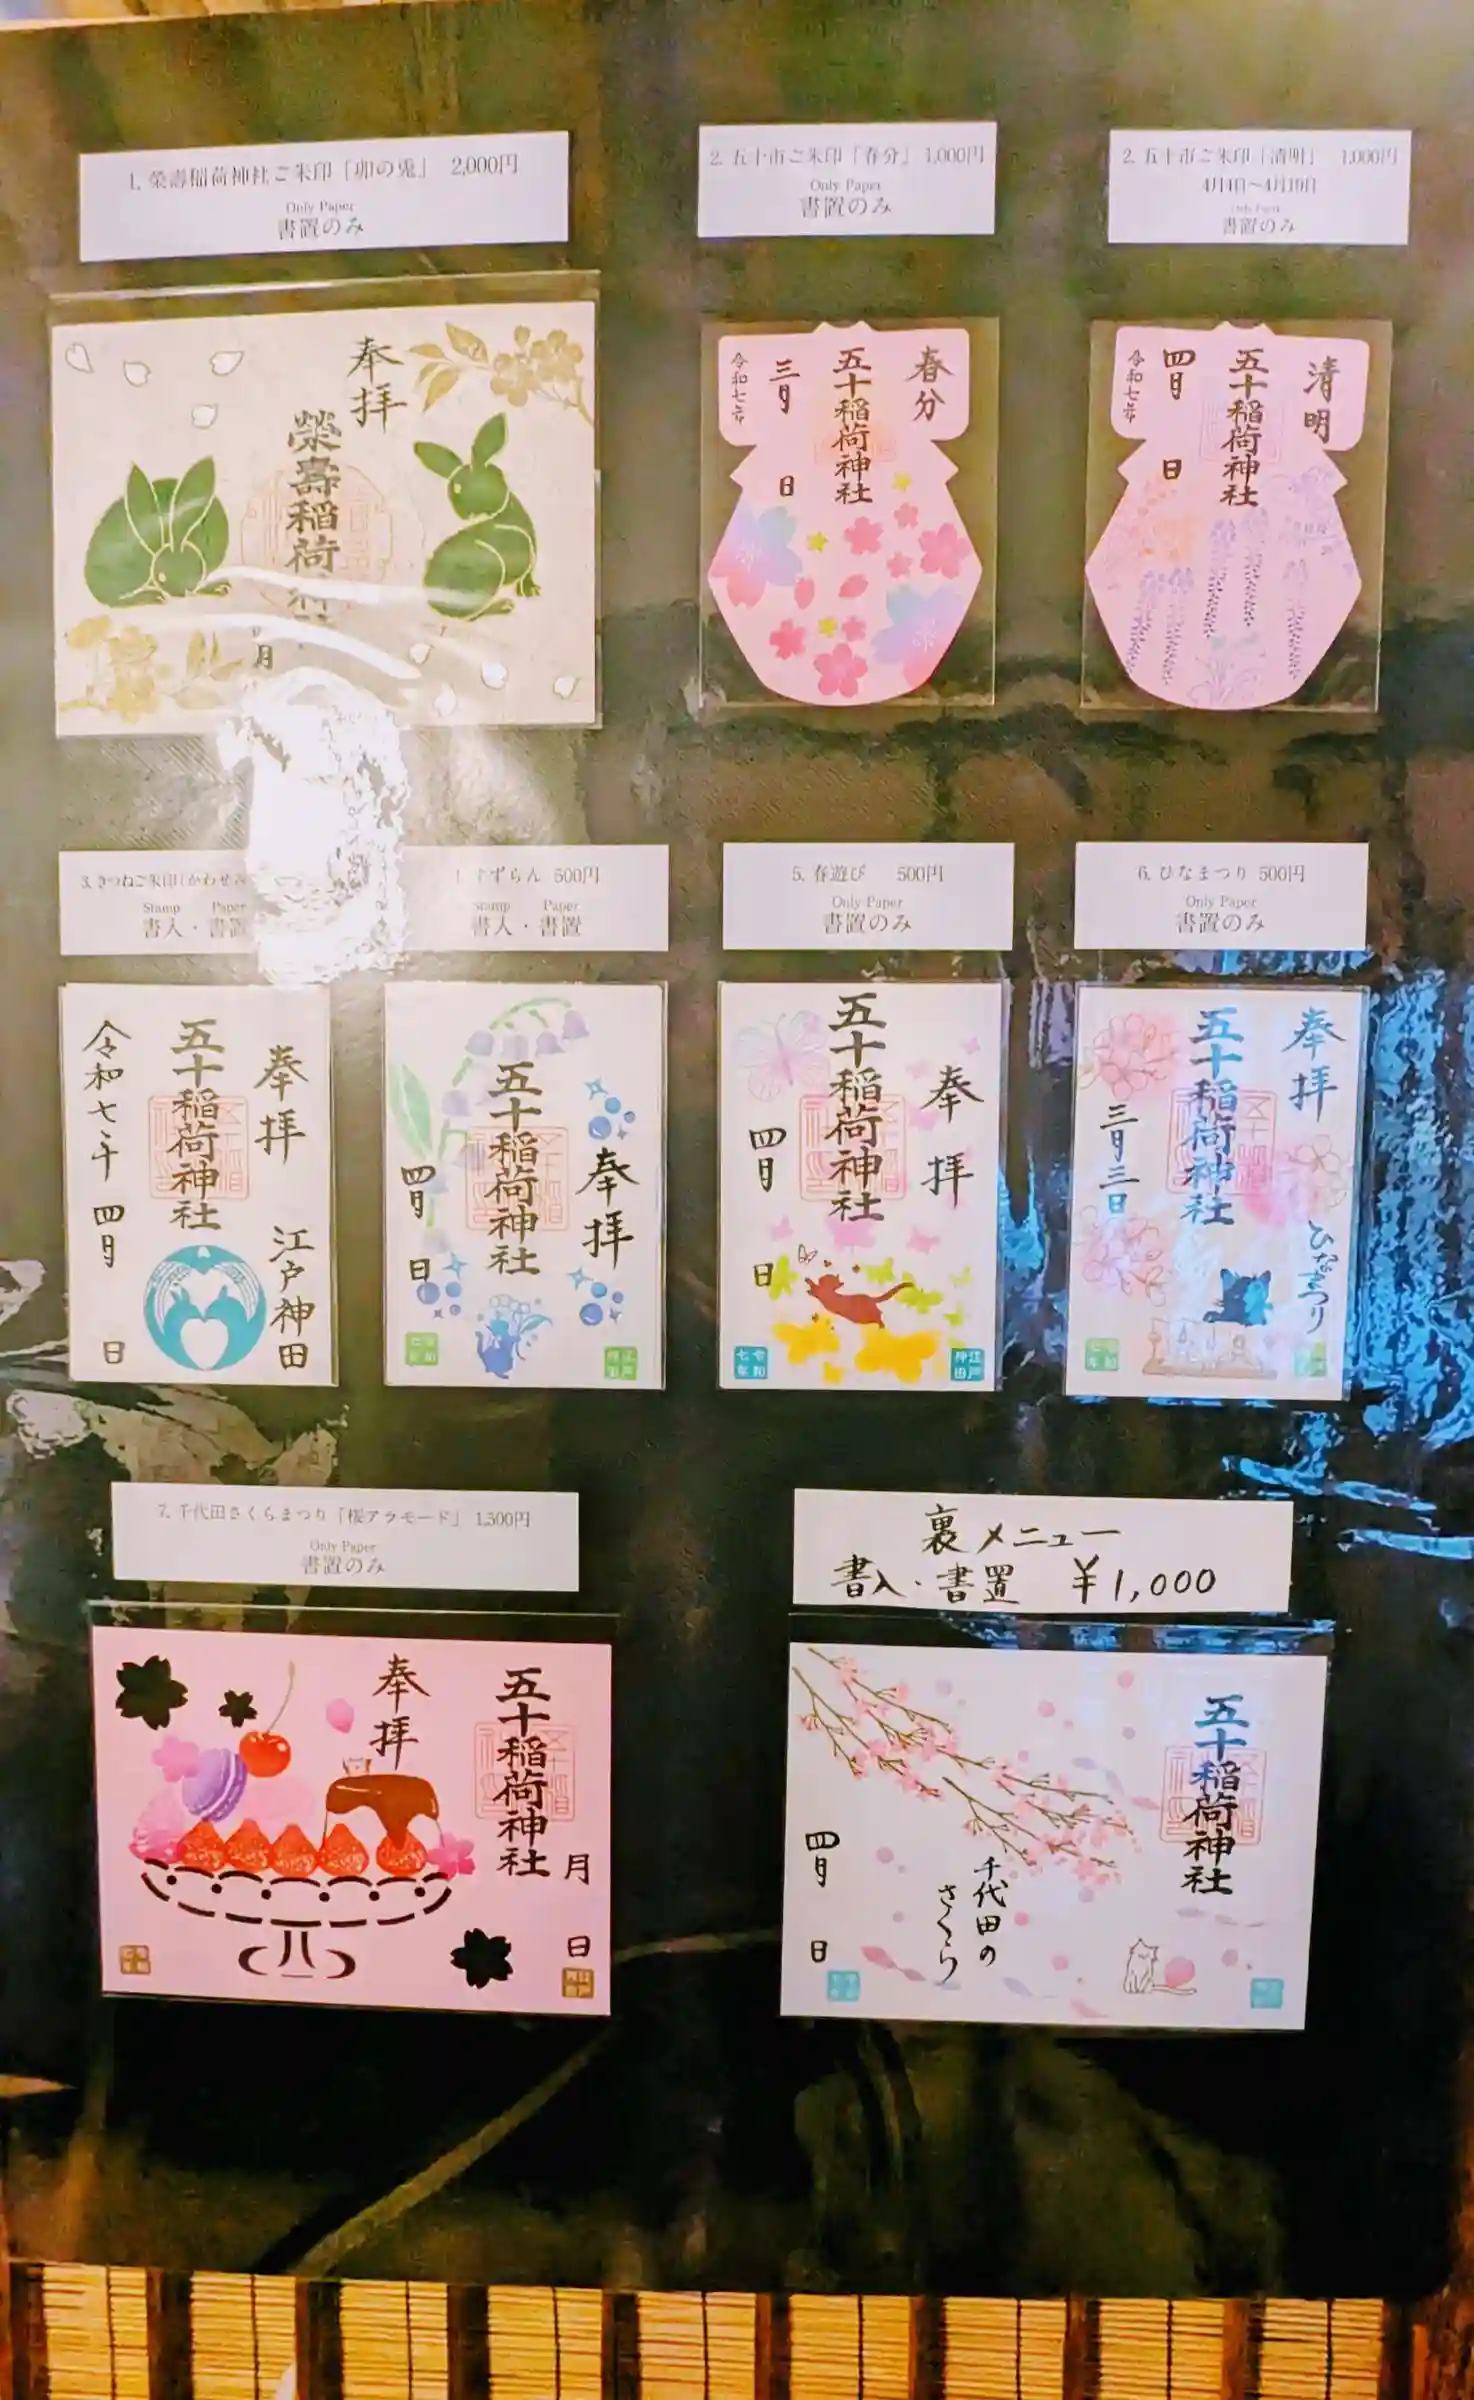 1. 榮壽稲荷神社ご朱印「卯の兎」 2,000円
Only Paper
書置のみ
2. 五十市ご朱印「春分」 1,000円
Only Paper
書置のみ
2. 五十市ご朱印「清明」 1,000円
4月4日〜4月19日
Only Paper
書置のみ
奉拝
榮壽稲荷
月
春分
五十稲荷神社
三月 日
令和七年
清明
五十稲荷神社
四月 日
令和七年
3. きつねご朱印(かわせみ
Stamp Paper
書入・書置
すずらん 500円
Stamp Paper
書入・書置
5. 春遊び 500円
Only Paper
書置のみ
6. ひなまつり 500円
Only Paper
書置のみ
奉拝 江戸神田
五十稲荷神社
令和七年 四月 日
奉拝
五十稲荷神社
四月 日
奉拝
五十稲荷神社
四月 日
令和七年
江戸神田
奉拝 ひなまつり
五十稲荷神社
三月三日
7. 千代田さくらまつり「桜アラモード」 1,500円
Only Paper
書置のみ
裏メニュー
書入・書置 ¥1,000
五十稲荷神社
月 日
奉拝
五十稲荷神社
千代田の
さくら
四月 日